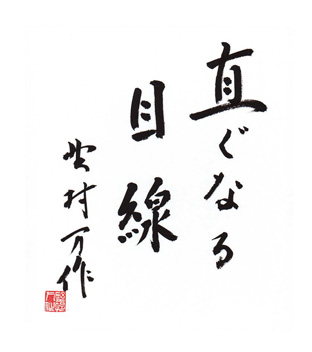 直ぐなる
目線
野村万作